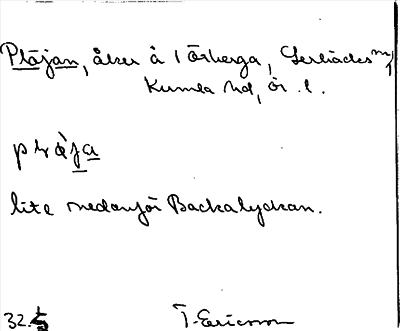 Plåjan, åker å 1 Örberga, Gerlaches m,
Kumla hd, Ör. l.
pråja
lite nedanför Backalyckan.
32.5
T. Ericsson